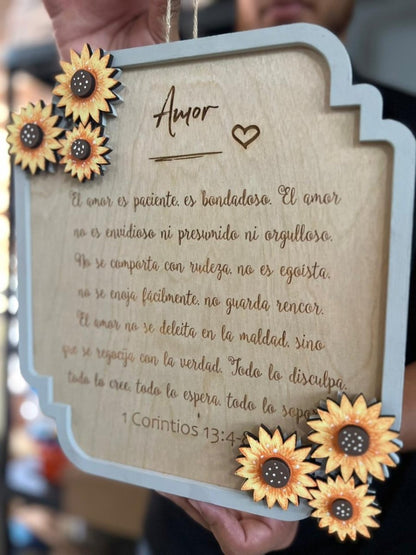 Amor
El amor es paciente, es bondadoso. El amor
no es envidioso ni presumido ni orgulloso.
No se comporta con rudeza, no es egoísta,
no se enoja fácilmente, no guarda rencor.
El amor no se deleita en la maldad, sino
que se regocija con la verdad. Todo lo disculpa,
todo lo cree, todo lo espera, todo lo
1 Corintios 13:4-